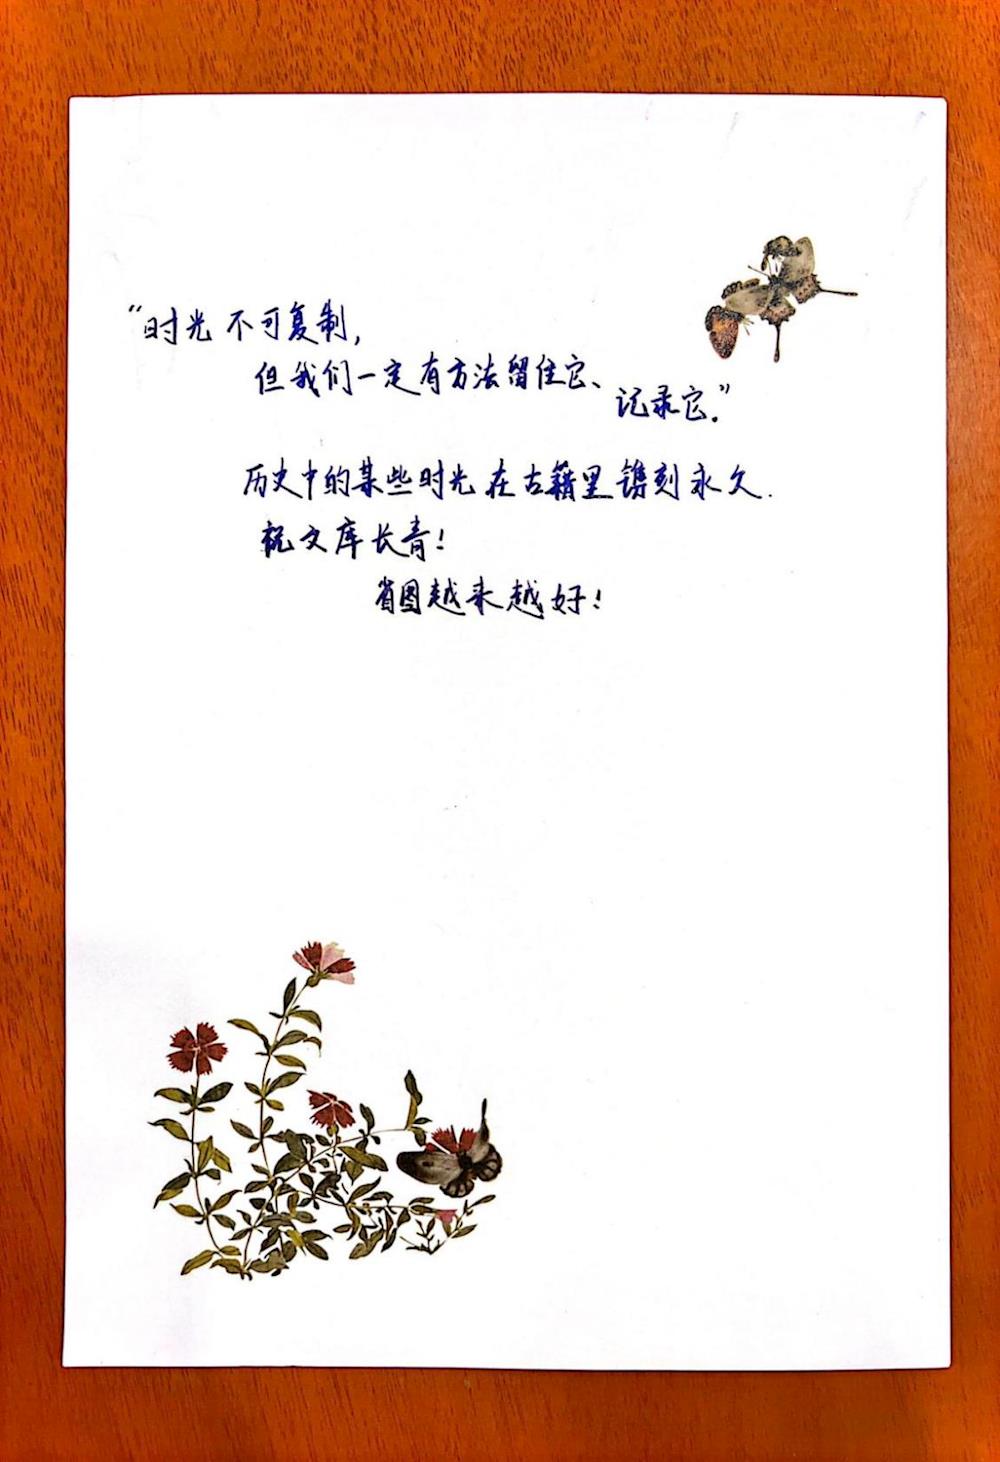 “时光不可复制,
但我们一定有方法留住它、
记录它.”
历史中的某些时光在古籍里镌刻永久.
祝文库长青!
省图越来越好!